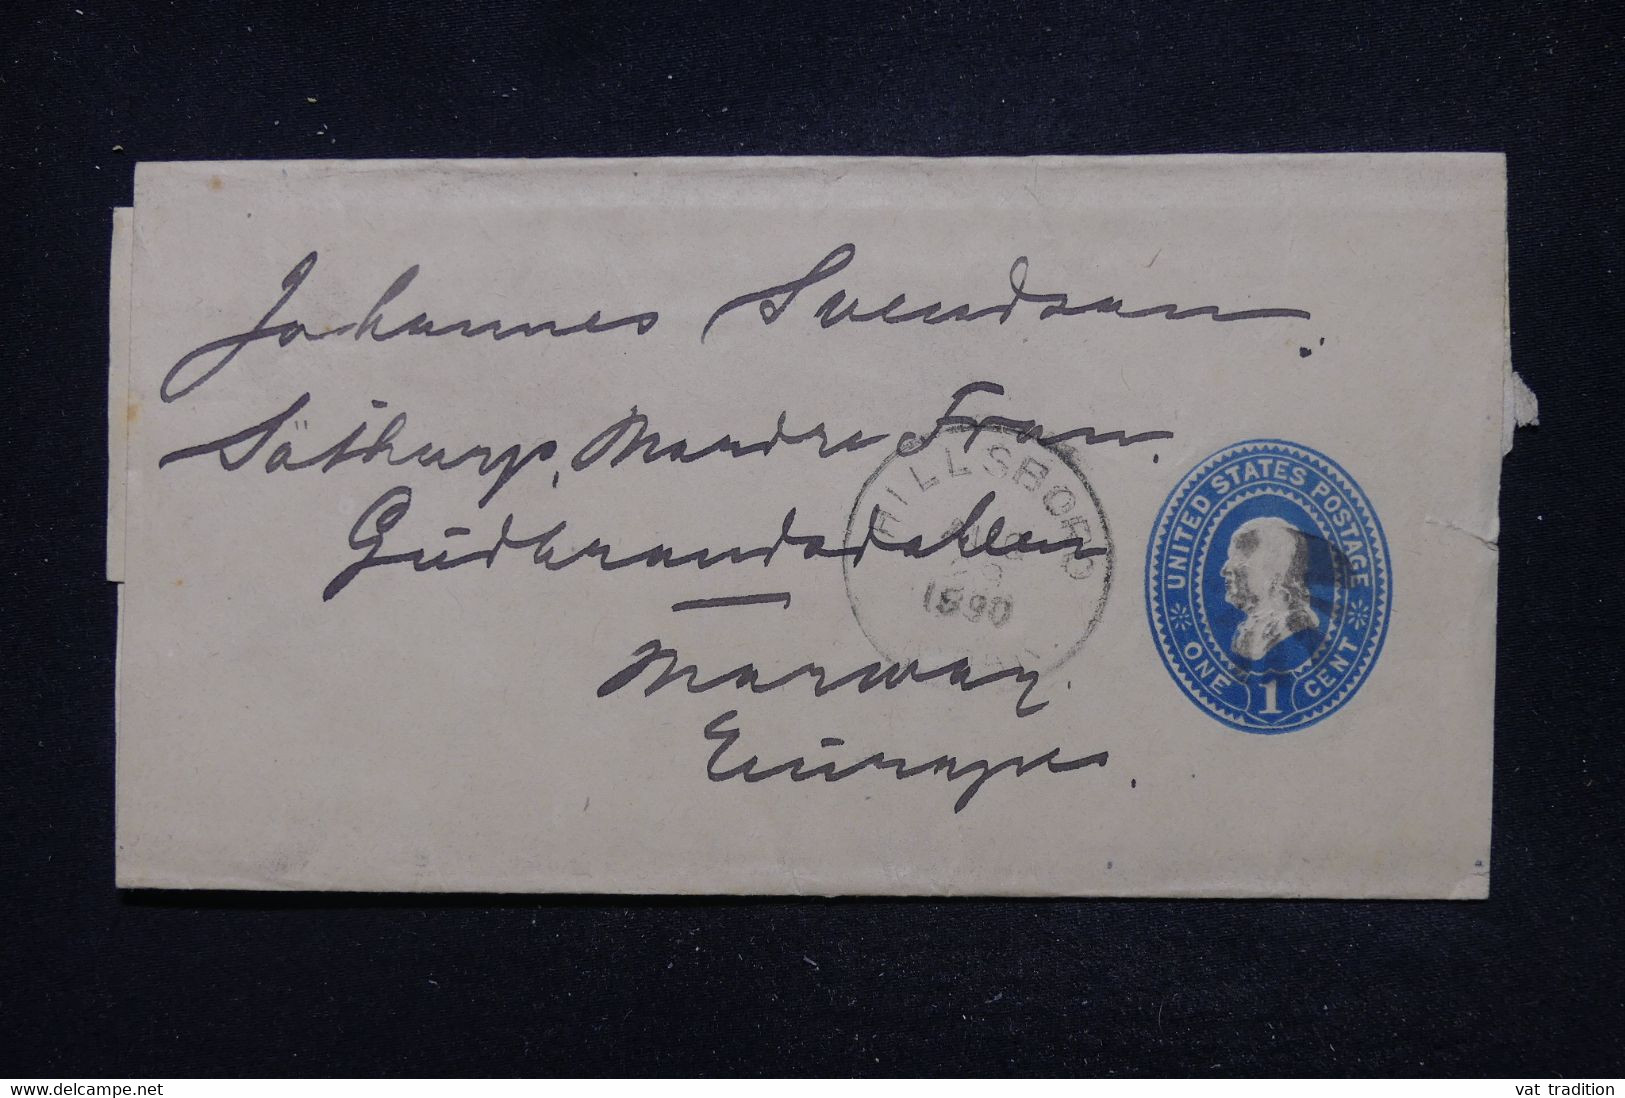 Johannes Svendsen.
Nordre Fron.
Gudbrandsdahlen
Norway.
Europe.
HILLSBORO
1890
UNITED STATES POSTAGE
ONE 1 CENT
delcampe.net
vat tradition